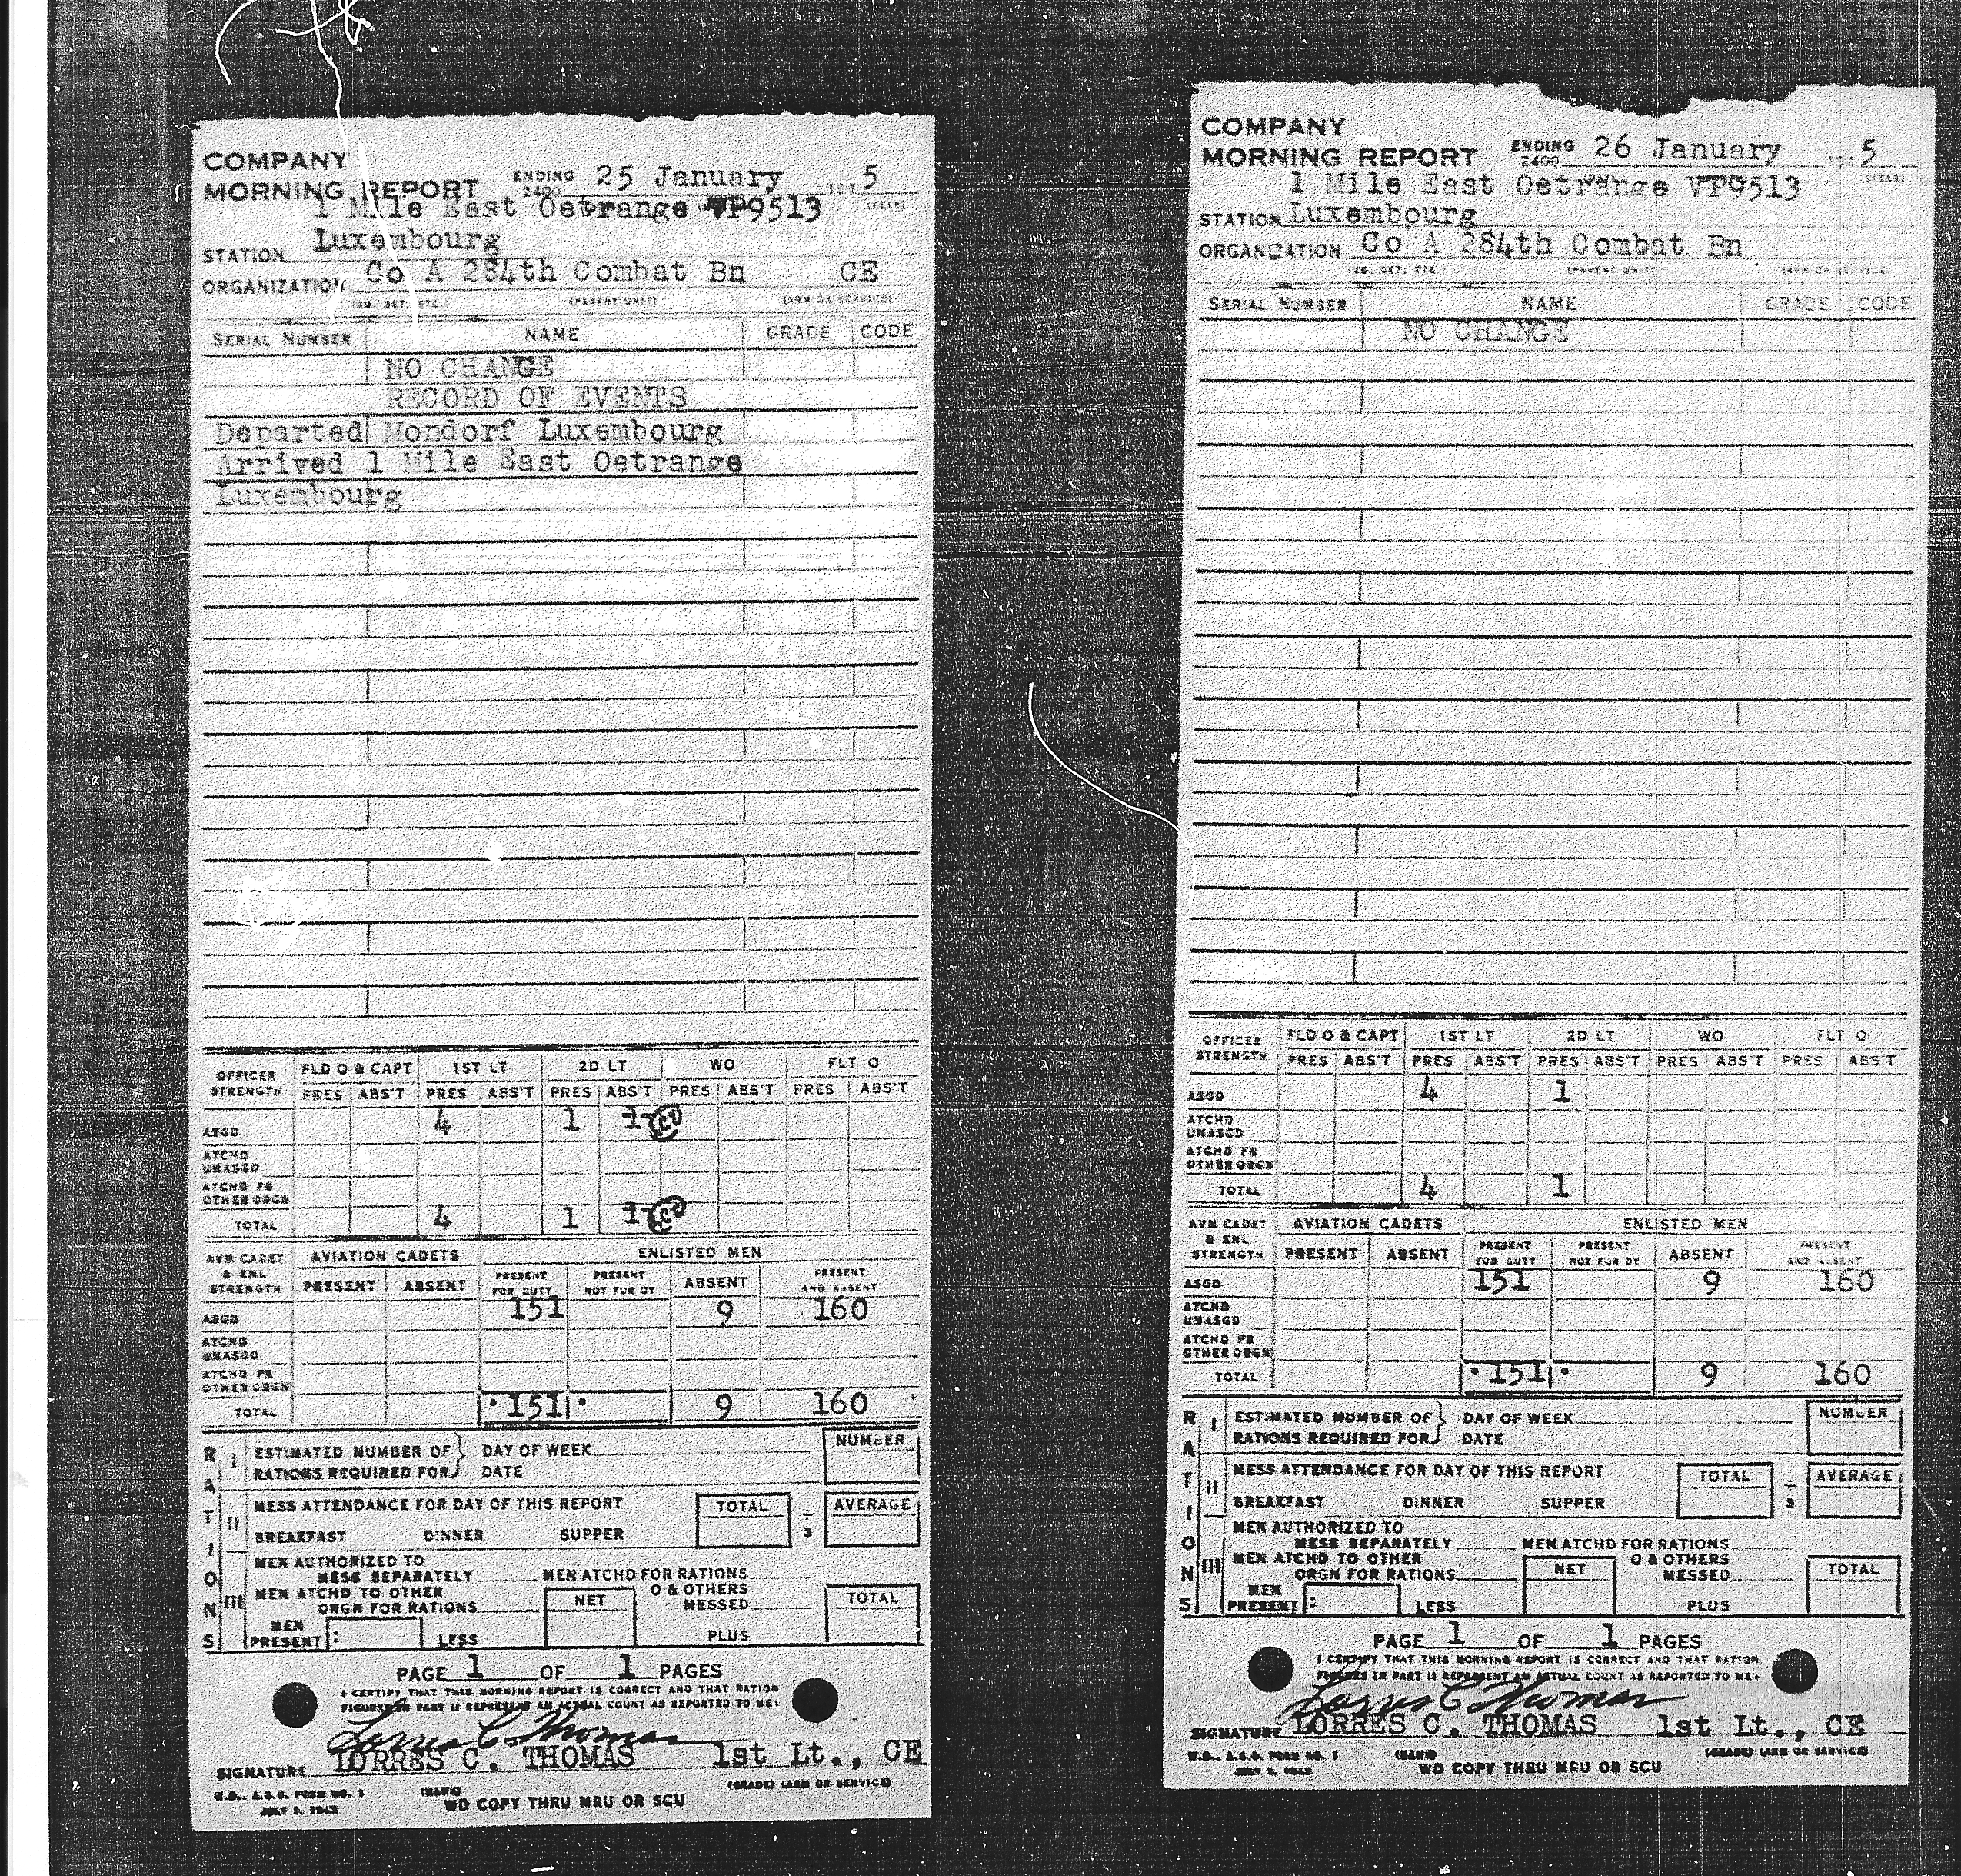 COMPANY
MORNING REPORT ENDING 2400 25 January 1945
1 Mile East Oetrange VP9513
STATION Luxembourg
ORGANIZATION Co A 284th Combat Bn CE
(CO. DET. ETC.) (PARENT UNIT) (ARM OR SERVICE)
SERIAL NUMBER NAME GRADE CODE
NO CHANGE
RECORD OF EVENTS
Departed Mondorf Luxembourg
Arrived 1 Mile East Oetrange
Luxembourg
OFFICER STRENGTH FLD O & CAPT 1ST LT 2D LT WO FLT O
PRES ABS'T PRES ABS'T PRES ABS'T PRES ABS'T PRES ABS'T
ASGD 4 1 1
ATCHD UNASGD
ATCHD FR OTHER ORGN
TOTAL 4 1 1
AVN CADET & ENL STRENGTH AVIATION CADETS ENLISTED MEN
PRESENT ABSENT PRESENT FOR DUTY PRESENT NOT FOR DY ABSENT PRESENT AND ABSENT
ASGD 151 9 160
ATCHD UNASGD
ATCHD FR OTHER ORGN
TOTAL 151 9 160
RATIONS
I ESTIMATED NUMBER OF RATIONS REQUIRED FOR } DAY OF WEEK NUMBER
DATE
II MESS ATTENDANCE FOR DAY OF THIS REPORT TOTAL ÷ 3 AVERAGE
BREAKFAST DINNER SUPPER
III MEN AUTHORIZED TO
MESS SEPARATELY MEN ATCHD FOR RATIONS
MEN ATCHD TO OTHER ORGN FOR RATIONS NET O & OTHERS MESSED TOTAL
MEN PRESENT : LESS PLUS
PAGE 1 OF 1 PAGES
I CERTIFY THAT THIS MORNING REPORT IS CORRECT AND THAT RATION
FIGURES IN PART II REPRESENT AN ACTUAL COUNT AS REPORTED TO ME:
Lorres C Thomas
SIGNATURE LORRES C. THOMAS 1st Lt., CE
W.D., A.G.O. FORM NO. 1 (NAME) (GRADE) (ARM OR SERVICE)
JULY 1, 1943 WD COPY THRU MRU OR SCU
COMPANY
MORNING REPORT ENDING 2400 26 January 1945
(YEAR)
1 Mile East Oetrange VP9513
STATION Luxembourg
ORGANIZATION Co A 284th Combat Bn
(CO. DET. ETC.) (PARENT UNIT) (ARM OR SERVICE)
SERIAL NUMBER NAME GRADE CODE
NO CHANGE
OFFICER STRENGTH FLD O & CAPT 1ST LT 2D LT WO FLT O
PRES ABS'T PRES ABS'T PRES ABS'T PRES ABS'T PRES ABS'T
ASGD 4 1
ATCHD UNASGD
ATCHD FR OTHER ORGN
TOTAL 4 1
AVN CADET & ENL STRENGTH AVIATION CADETS ENLISTED MEN
PRESENT ABSENT PRESENT FOR DUTY PRESENT NOT FOR DY ABSENT PRESENT AND ABSENT
ASGD 151 9 160
ATCHD UNASGD
ATCHD FR OTHER ORGN
TOTAL 151 9 160
RATIONS
I ESTIMATED NUMBER OF RATIONS REQUIRED FOR } DAY OF WEEK NUMBER
DATE
II MESS ATTENDANCE FOR DAY OF THIS REPORT TOTAL ÷ 3 AVERAGE
BREAKFAST DINNER SUPPER
III MEN AUTHORIZED TO
MESS SEPARATELY MEN ATCHD FOR RATIONS
MEN ATCHD TO OTHER ORGN FOR RATIONS NET O & OTHERS MESSED TOTAL
MEN PRESENT : LESS PLUS
PAGE 1 OF 1 PAGES
I CERTIFY THAT THIS MORNING REPORT IS CORRECT AND THAT RATION
FIGURES IN PART II REPRESENT AN ACTUAL COUNT AS REPORTED TO ME:
Lorres C Thomas
SIGNATURE LORRES C. THOMAS 1st Lt., CE
W.D., A.G.O. FORM NO. 1 (NAME) (GRADE) (ARM OR SERVICE)
JULY 1, 1943 WD COPY THRU MRU OR SCU